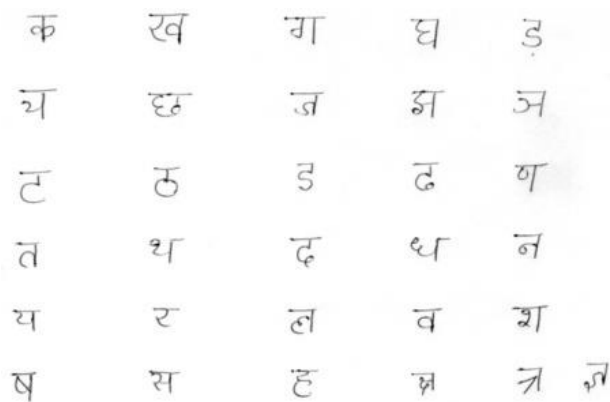 क ख ग घ ड़
च छ ज झ ञ
ट ठ ड ढ ण
त थ द ध न
य र ल व श
ष स ह क्ष त्र ज्ञ